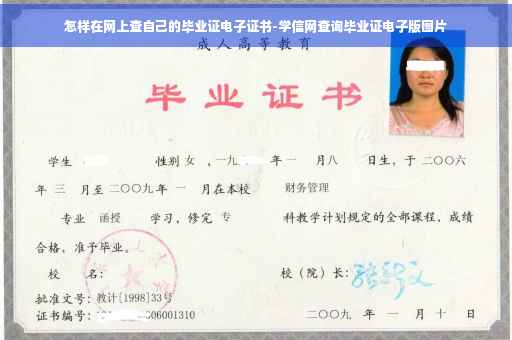 怎样在网上查自己的毕业证电子证书-学信网查询毕业证电子版图片
成人高等教育
毕业证书
学生 性别 女 ，一九 年 一 月 八 日生，于 二〇〇六
年 三 月至 二〇〇九 年 一 月在本校 财务管理
专业 函授 学习，修完 专 科教学计划规定的全部课程，成绩
合格，准予毕业。
校 名： 校（院）长：
批准文号：教计[1998]33号
证书编号： 006001310 二〇〇九 年 一 月 十 日